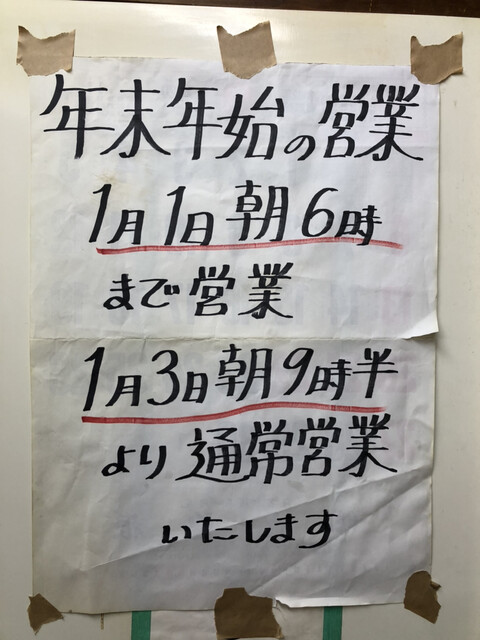 年末年始の営業
1月1日朝6時
まで営業
1月3日朝9時半
より通常営業
いたします